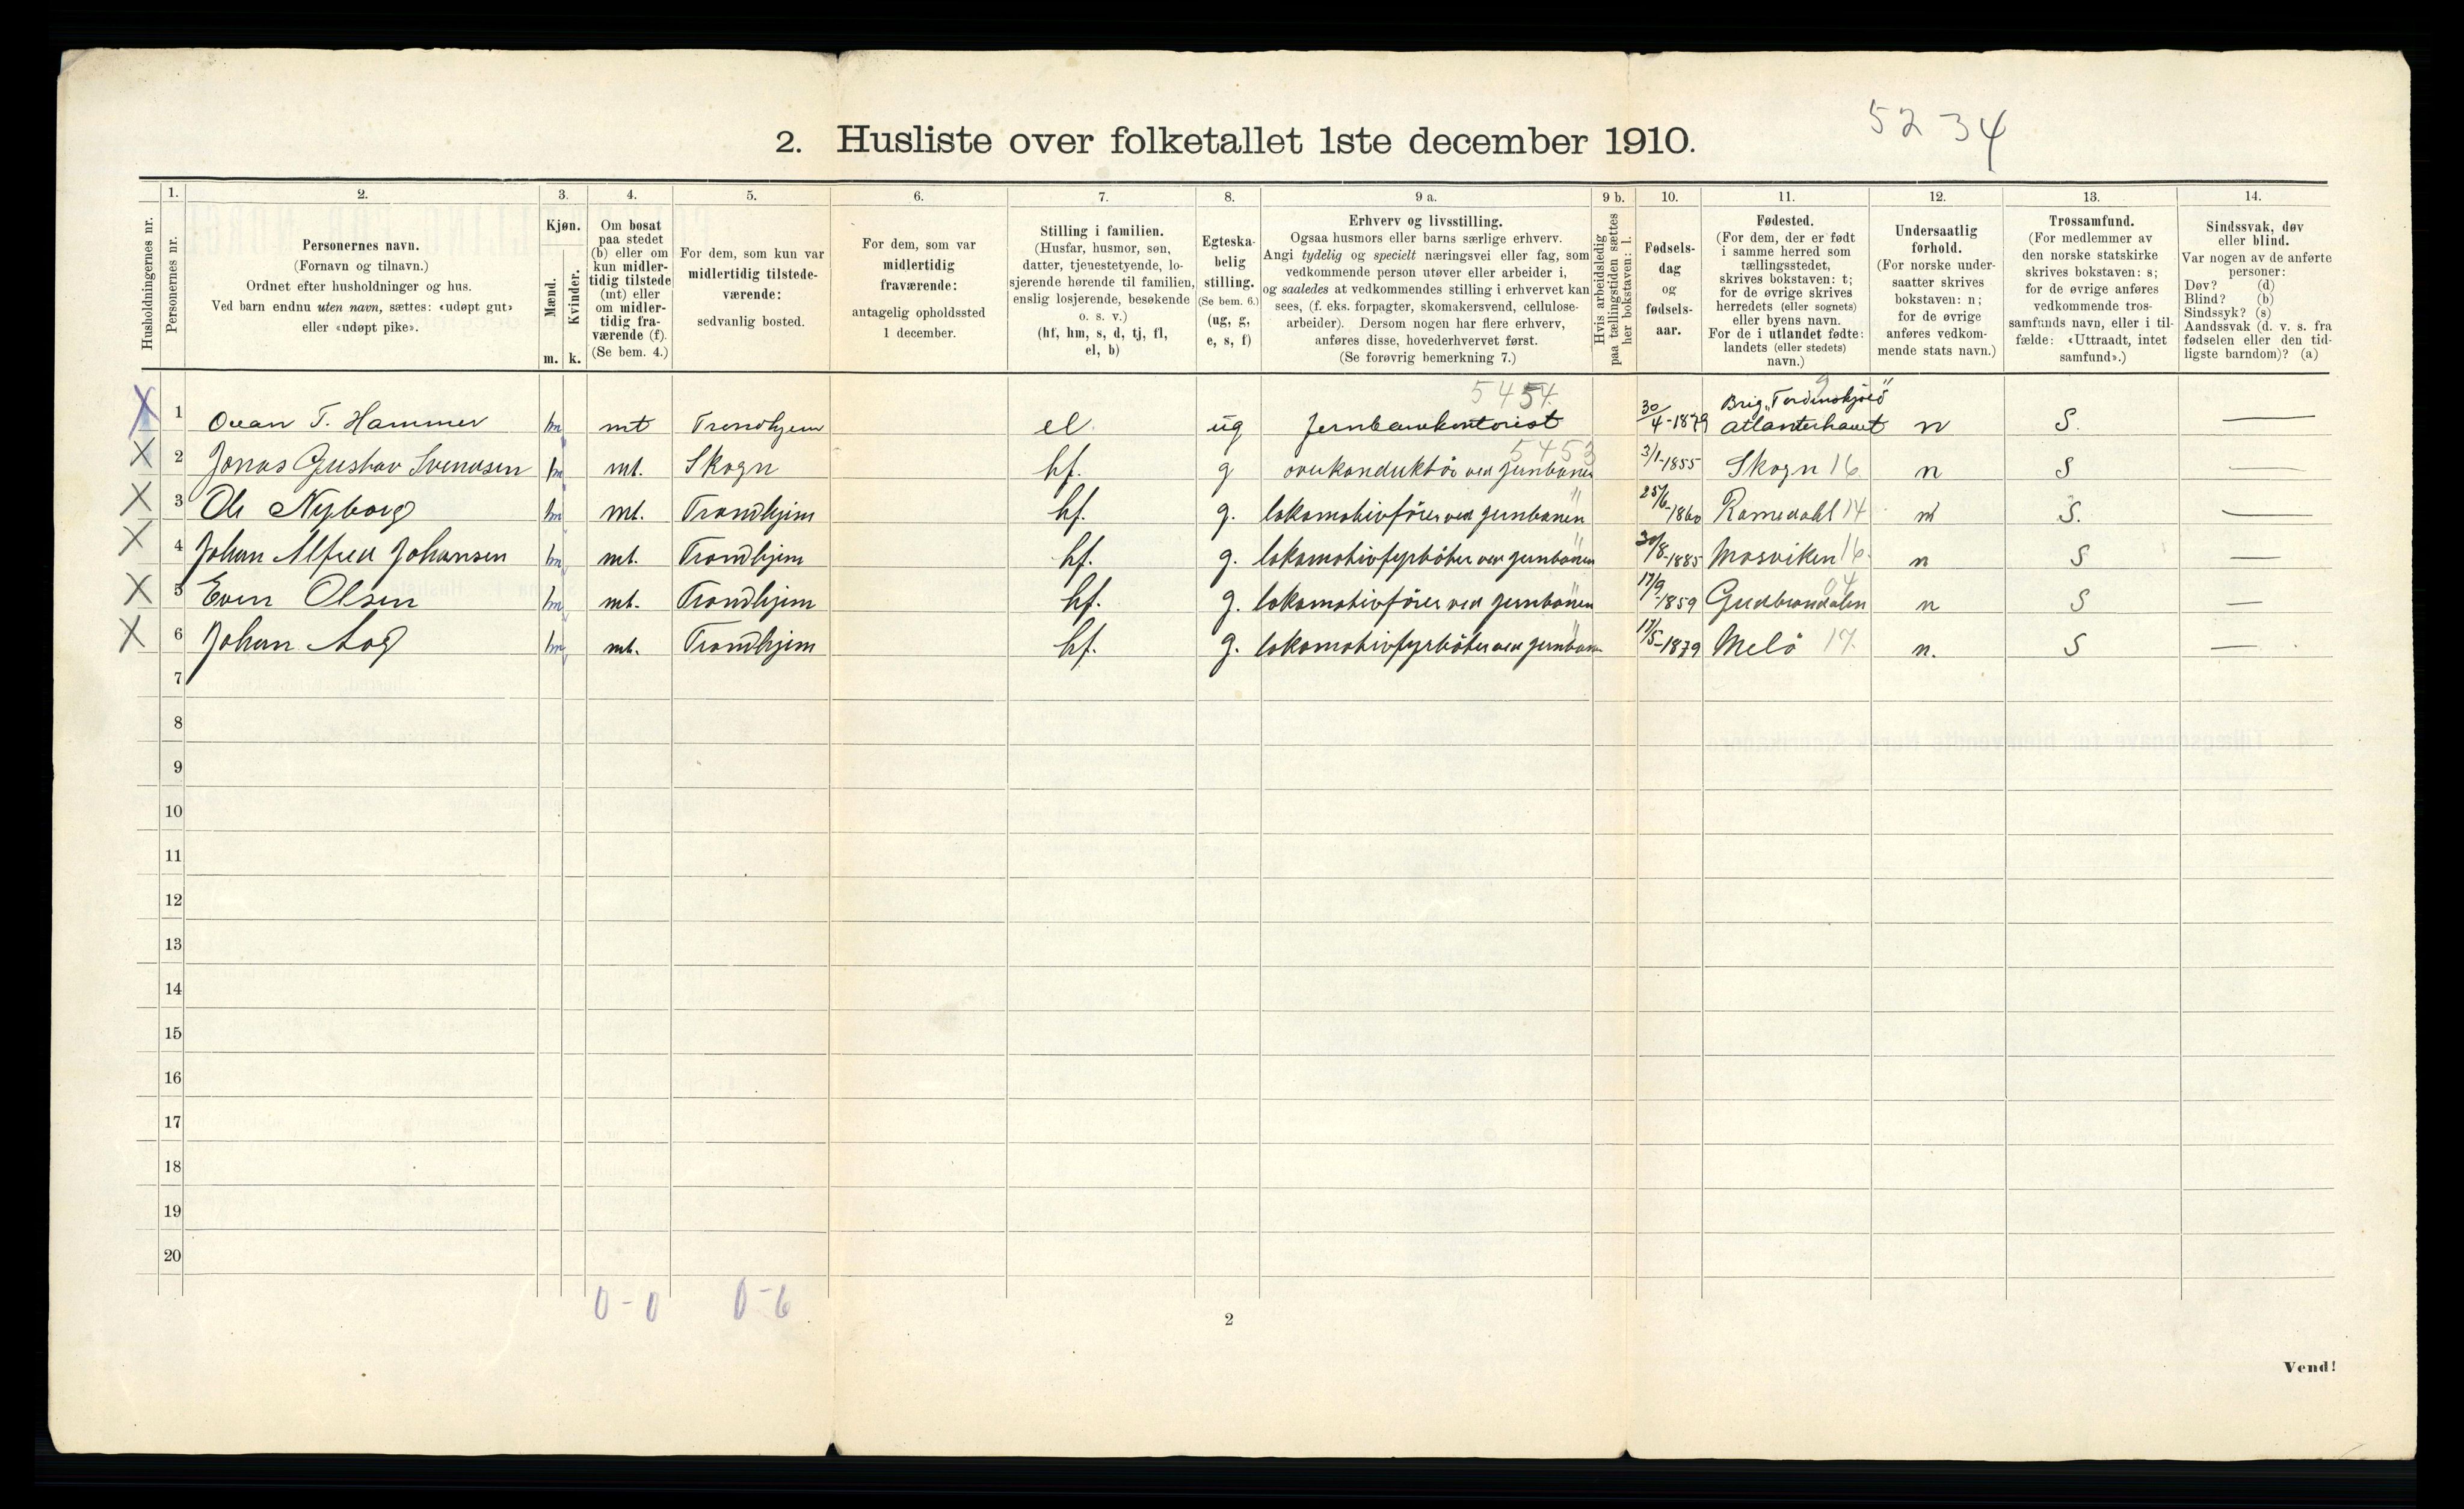 52 34
2. Husliste over folketallet 1ste december 1910.
Husholdningernes nr.
1.
Personernes nr.
2.
Personernes navn.
(Fornavn og tilnavn.)
Ordnet efter husholdninger og hus.
Ved barn endnu uten navn, sættes: «udøpt gut»
eller «udøpt pike».
3.
Kjøn.
Mænd.
Kvinder.
m. k.
4.
Om bosat
paa stedet
(b) eller om
kun midler-
tidig tilstede
(mt) eller
om midler-
tidig fra-
værende (f).
(Se bem. 4.)
5.
For dem, som kun var
midlertidig tilstede-
værende:
sedvanlig bosted.
6.
For dem, som var
midlertidig
fraværende:
antagelig opholdssted
1 december.
7.
Stilling i familien.
(Husfar, husmor, søn,
datter, tjenestetyende, lo-
sjerende hørende til familien,
enslig losjerende, besøkende
o. s. v.)
(hf, hm, s, d, tj, fl,
el, b)
8.
Egteska-
belig
stilling.
(Se bem. 6.)
(ug, g,
e, s, f)
9 a.
Erhverv og livsstilling.
Ogsaa husmors eller barns særlige erhverv.
Angi tydelig og specielt næringsvei eller fag, som
vedkommende person utøver eller arbeider i,
og saaledes at vedkommendes stilling i erhvervet kan
sees, (f. eks. forpagter, skomakersvend, cellulose-
arbeider). Dersom nogen har flere erhverv,
anføres disse, hovederhvervet først.
(Se forøvrig bemerkning 7.)
9 b.
Hvis arbeidsledig
paa tællingstiden sættes
her bokstaven: l.
10.
Fødsels-
dag
og
fødsels-
aar.
11.
Fødested.
(For dem, der er født
i samme herred som
tællingsstedet,
skrives bokstaven: t;
for de øvrige skrives
herredets (eller sognets)
eller byens navn.
For de i utlandet fødte:
landets (eller stedets)
navn.)
12.
Undersaatlig
forhold.
(For norske under-
saatter skrives
bokstaven: n;
for de øvrige
anføres vedkom-
mende stats navn.)
13.
Trossamfund.
(For medlemmer av
den norske statskirke
skrives bokstaven: s;
for de øvrige anføres
vedkommende tros-
samfunds navn, eller i til-
fælde: «Uttraadt, intet
samfund».)
14.
Sindssvak, døv
eller blind.
Var nogen av de anførte
personer:
Døv? (d)
Blind? (b)
Sindssyk? (s)
Aandssvak (d. v. s. fra
fødselen eller den tid-
ligste barndom)? (a)
5454. 9
X 1 T. Hammer m mt Trondhjem el. ug Jernbanekontorist 30/4-1879 Brig „Tordenskjold" Atlanterhavet n S. —
5453
X 2 Jonas Gustav Svendsen m mt. Skogn hf. g overkonduktör ved jernbanen 3/1-1855 Skogn 16 n S —
X 3 Ole Nyborg m mt. Trondhjem hf. g. lokomotivförer ved jernbanen " 25/6-1860 Romsdahl 14 n S. —
X 4 Johan Alfred Johansen m mt. Trondhjem hf. g. lokomotivfyrböter ved jernbanen " 30/8-1885 Mosviken 16. n S —
X 5 Even Olsen m mt. Trondhjem hf. g. lokomotivförer ved jernbanen " 17/9-1859 Gudbrandalen 04 n S —
X 6 Johan m mt. Trondhjem hf. g. lokomotivfyrböter ved jernbanen " 17/5-1879 Melö 17. n. S —
7
8
9
10
11
12
13
14
15
16
17
18
19
20
0-0 0-6
2
Vend!